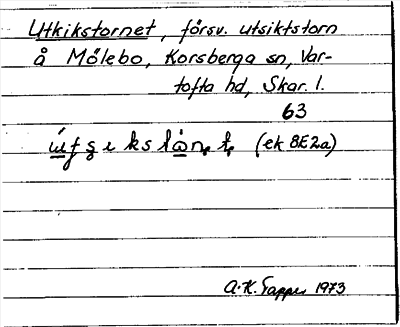 Utkikstornet, försv. utsiktstorn
å Mölebo, Korsberga sn, Var-
tofta hd, Skar. l.
63
(ek 8E2a)
A.K. Tapper 1973